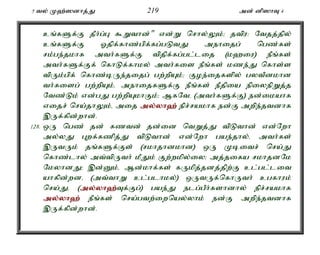 5 வல் முஹ்ஸனாத்து 219 அன் னிஸாவு 4
உங்களுக்கு தீர்ப்பு கூறுவான்" என்று சொல்லும்; தவிர: வேதத்தில்
உங்களுக்கு ஓதிக்காண்பிக்கப்படுவது அநாதைப் பெண்கள்
சம்பந்தமாக அவர்களுக்கு விதிக்கப்பட்டதை (மஹரை) நீங்கள்
அவர்களுக்குக் கொடுக்காமல் அவர்களை நீங்கள் மணந்து கொள்ள
விரும்பிக் கொண்டிருந்ததைப் பற்றியும்; குழந்தைகளில் பலவீனமான
வர்களைப் பற்றியும், அநாதைகளுக்கு நீங்கள் நீதியை நிலைநிறுத்த
வேண்டும் என்பது பற்றியுமாகும்; ஆகவே, (அவர்களுக்கு) நன்மையாக
எதைச் செய்தாலும், அதை அல்லாஹ் நிச்சயமாக நன்கு அறிந்தவனாக
இருக்கின்றான்.
128. ஒரு பெண் தன் கணவன் தன்னை வெறுத்து விடுவான் என்றோ
அல்லது புறக்கணித்து விடுவான் என்றோ பயந்தால், அவர்கள்
இருவரும் தங்களுக்குள் (சமாதானமான) ஒரு முடிவைச் செய்து
கொண்டால் அவ்விருவர் மீதும் குற்றமில்லை; அத்தகைய சமாதானமே
மேலானது; இன்னும், ஆன்மாக்கள் கருமித்தனத்திற்கு உட்பட்டவை
யாகின்றன. (அவ்வாறு உட்படாமல்) ஒருவருக்கொருவர் உபகாரம்
செய்து, (அல்லாஹ்வுக்குப்) பயந்து நடப்பீர்களானால் நிச்சயமாக
அல்லாஹ் நீங்கள் செய்பவற்றையெல்லாம் நன்கு அறிந்தவனாக
இருக்கின்றான்.